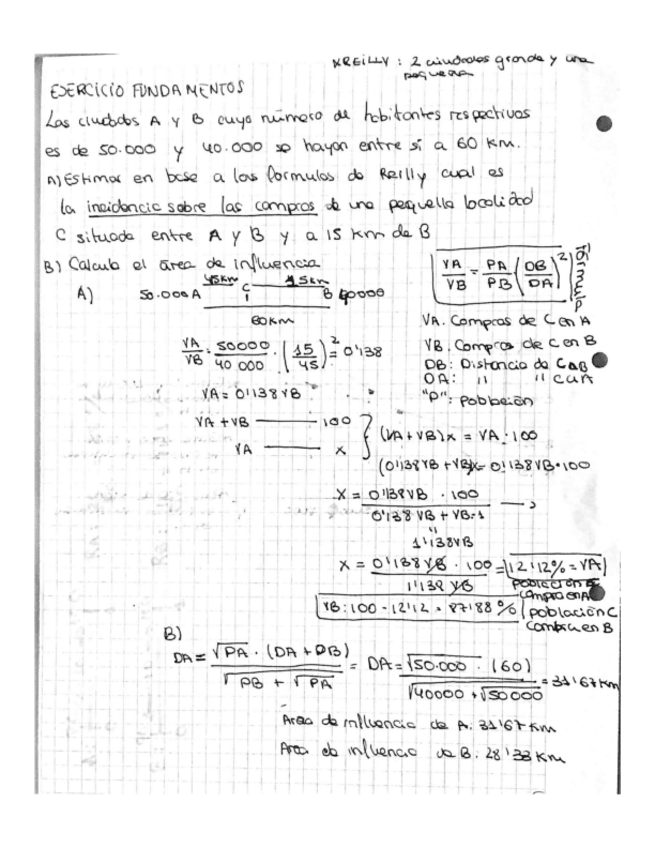 *REILLY: 2 ciudades grande y una
pequeña
EJERCICIO FUNDAMENTOS
Las ciudades A y B cuyo número de habitantes respectivos
es de 50.000 y 40.000 se hayan entre sí a 60 km.
A) Estimar en base a las formulas de Reilly cual es
la incidencia sobre las compras de una pequeña localidad
C situada entre A y B y a 15 km de B
B) Calcula el área de influencia
A) 50.000 A 45km C 15km B 40000
60km
VA/VB = PA/PB (DB/DA)² fórmula
VA: Compras de C en A
VB: Compras de C en B
DB: Distancia de C a B
DA: " " C a A
"P": Población
VA/VB = 50000/40 000 · (15/45)² = 0'138
VA = 0'138 VB
VA + VB —— 100
VA —— x
(VA+VB)x = VA · 100
(0'138VB + VB)x = 0'138VB · 100
X = 0'138VB · 100 / 0'138 VB + VB·1
"
1'138VB
X = 0'138VB · 100 / 1'138 VB = 12'12% = VA
población C
compra en A
VB: 100 - 12'12 = 87'88% población C
Compra en B
B)
DA = √PA · (DA + DB) / √PB + √PA = DA = √50.000 · (60) / √40000 + √50000 = 31'67 km
Area de influencia de A: 31'67 km
Area de influencia de B: 28'33 km